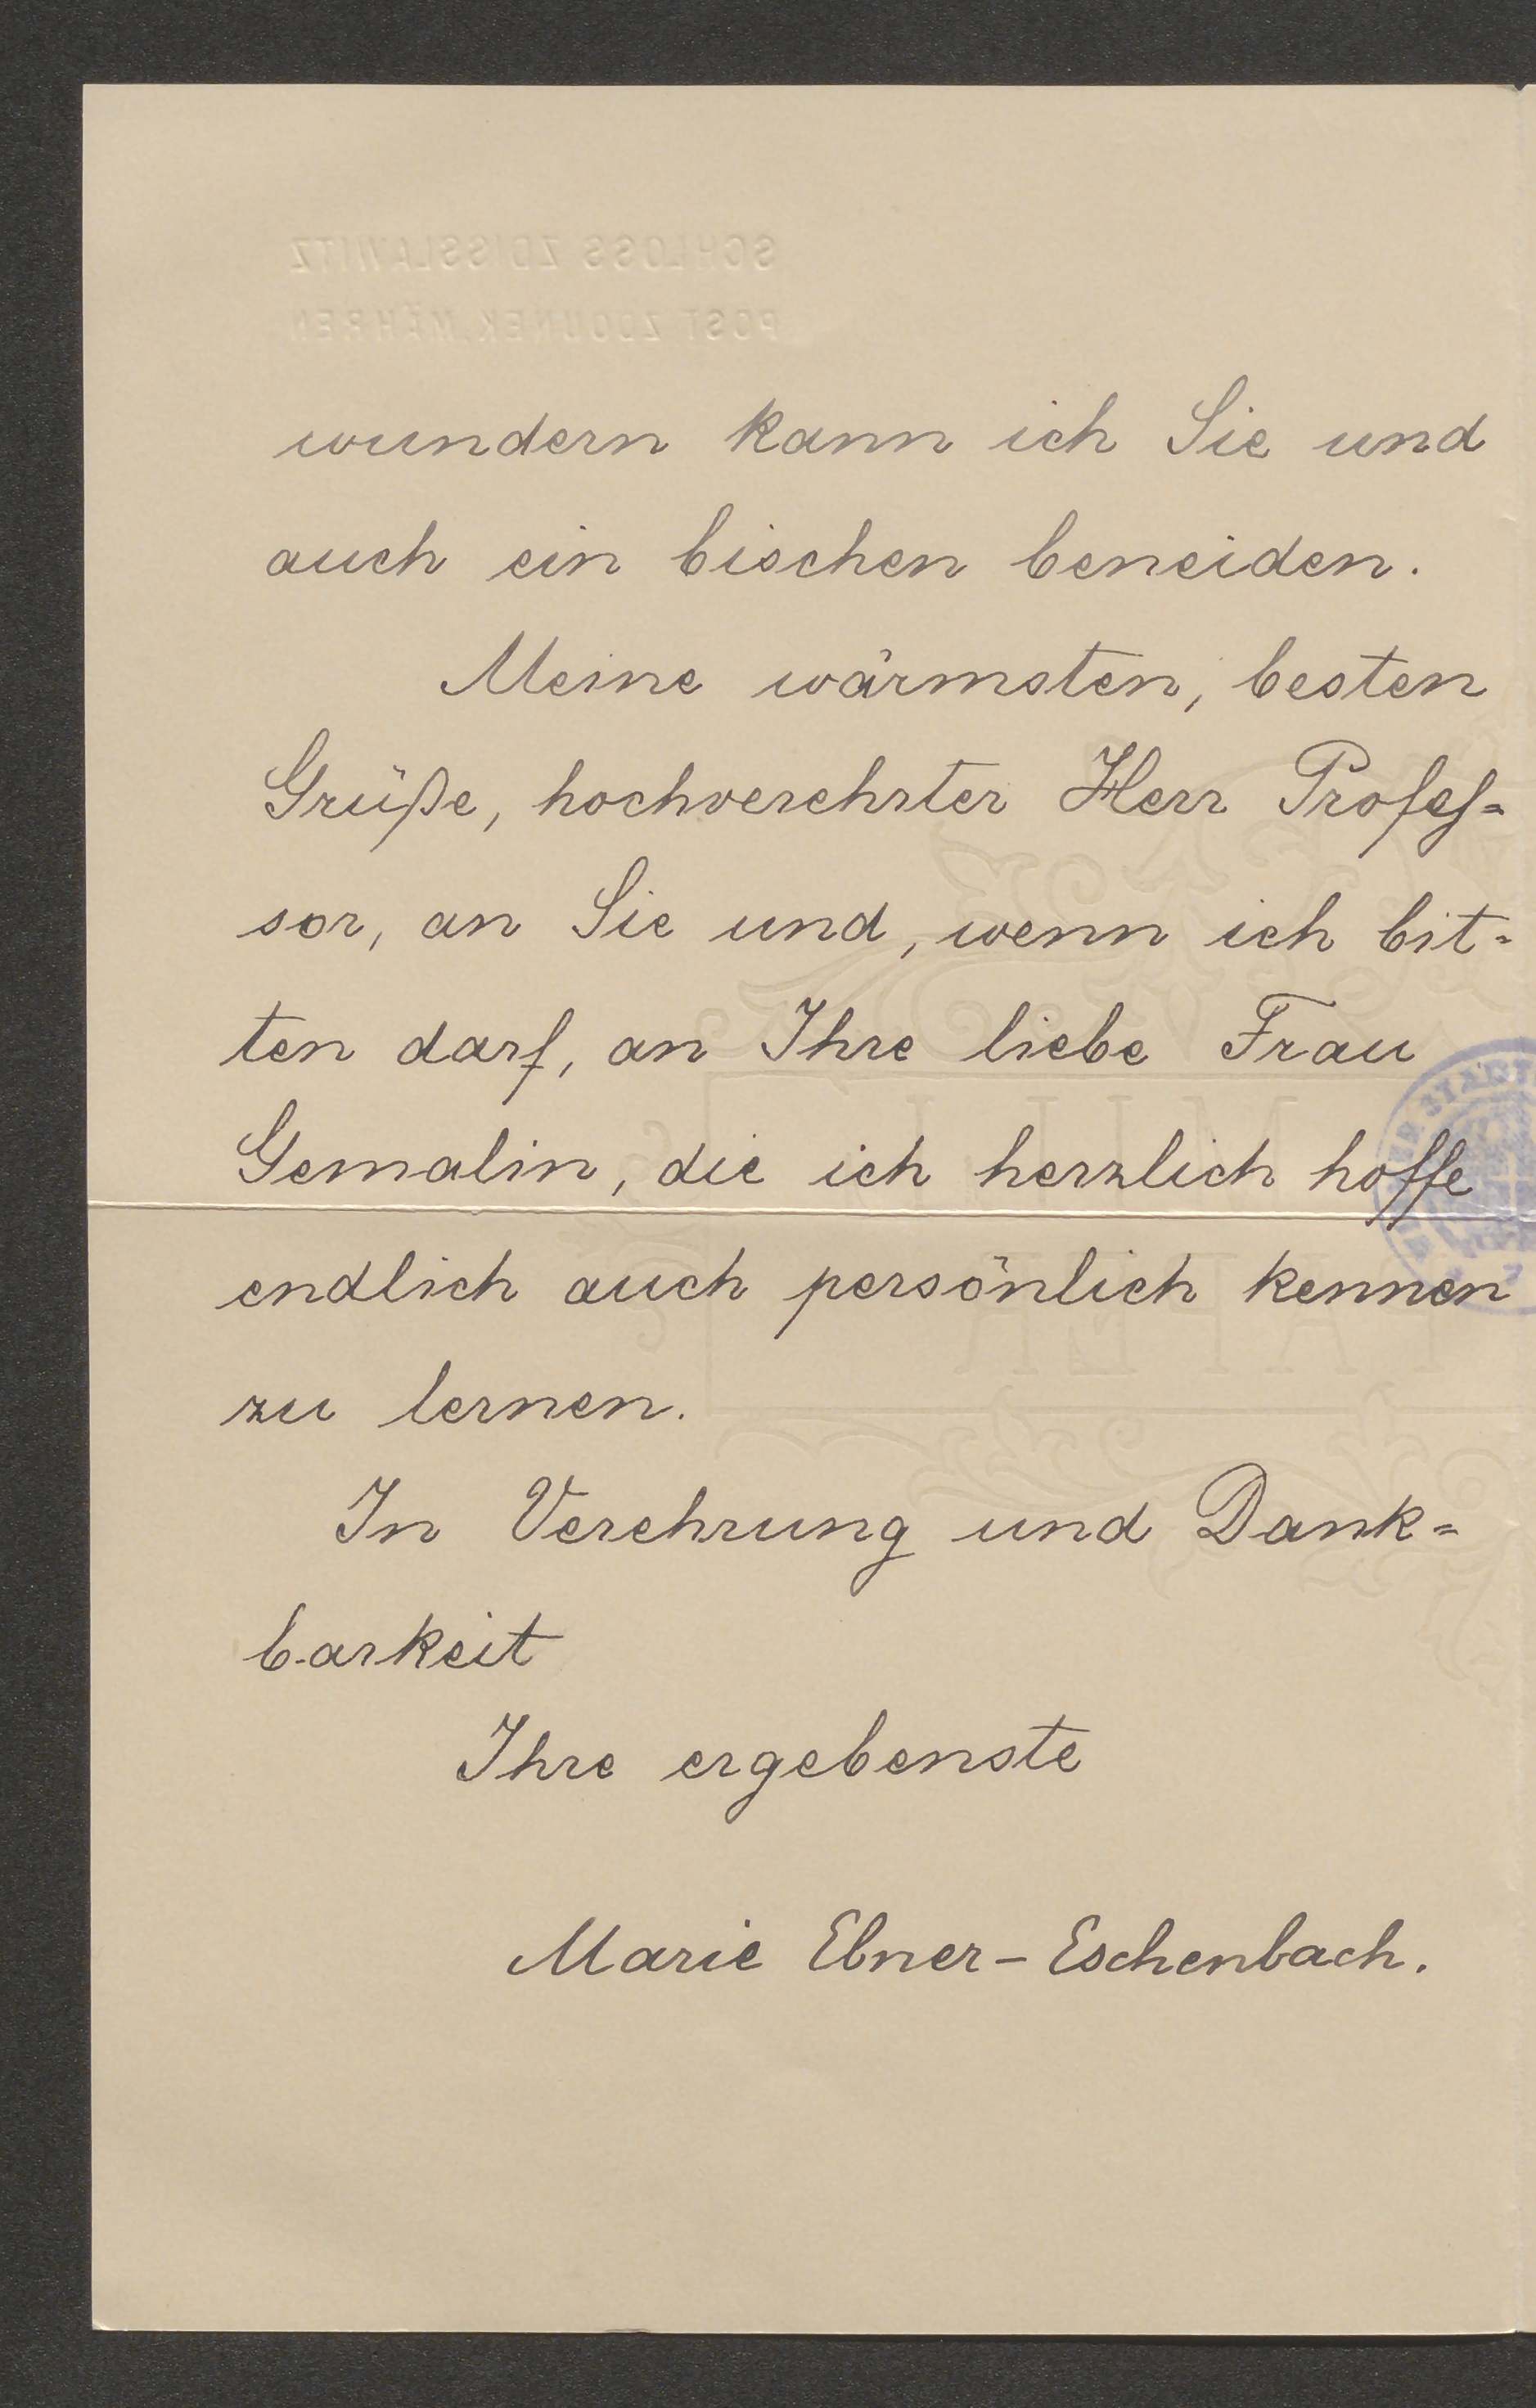 SCHLOSS ZDISSLAWITZ
POST ZDOUNEK, MÄHREN
wundern kann ich Sie und
auch ein bischen beneiden.
Meine wärmsten, besten
Grüße, hochverehrter Herr Profes-
sor, an Sie und, wenn ich bit-
ten darf, an Ihre liebe Frau
Gemalin, die ich herzlich hoffe
endlich auch persönlich kennen
zu lernen.
In Verehrung und Dank-
barkeit
Ihre ergebenste
Marie Ebner-Eschenbach.